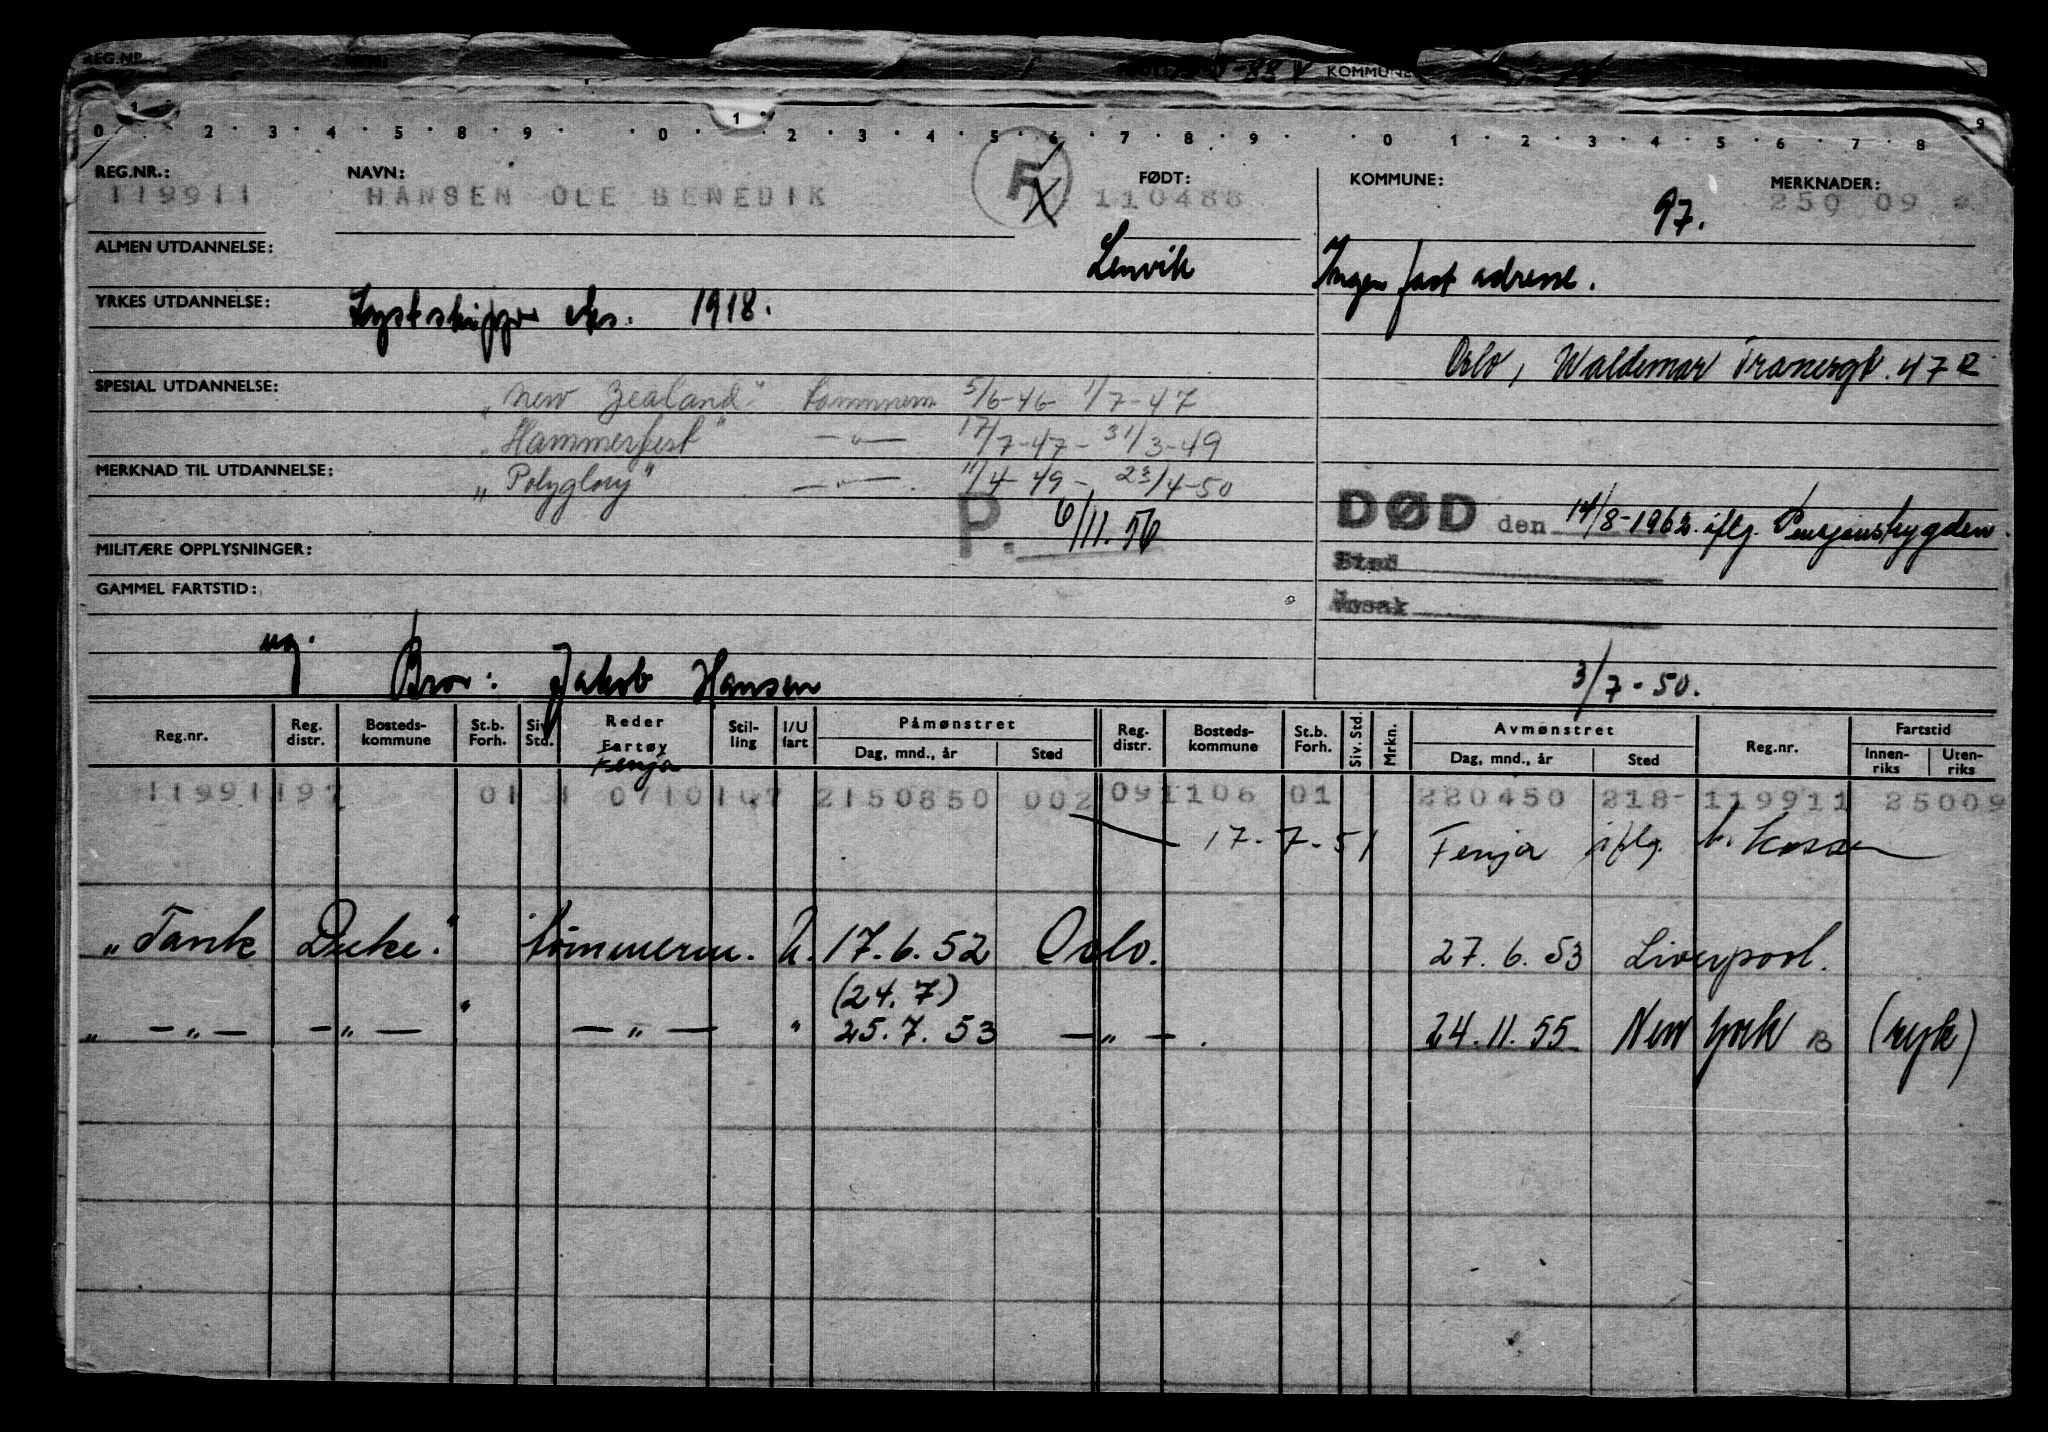 REG.NR. KOMMUNE
0 1 2 3 4 5 8 9 0 1 2 3 4 5 6 7 8 9 0 1 2 3 4 5 6 7 8 9
REG.NR.: NAVN: F FØDT: KOMMUNE: MERKNADER:
119911 HANSEN OLE BENEDIK 110488 97. 250 09
ALMEN UTDANNELSE: Lenvik Ingen fast adresse.
YRKES UTDANNELSE: Kystskipper eks. 1918.
Oslo, Waldemar Tranesgt. 47
SPESIAL UTDANNELSE: "New Zealand" tømmerm. 5/6-46 1/7-47
"Hammerfest" — " — 17/7-47 - 31/3-49
MERKNAD TIL UTDANNELSE: "Polyglory" — " — 11/4-49 - 23/4-50
P. 6/11.56 DØD den 14/8-1962 iflg. Pensjonstrygden.
MILITÆRE OPPLYSNINGER: Sted
GAMMEL FARTSTID: Årsak
ug. Bror: Jakob Hansen 3/7-50.
Reg.nr. Reg. distr. Bosteds-kommune St.b. Forh. Siv. Std. Reder Fartøy Stil-ling I/U fart Påmønstret Dag, mnd., år Sted Reg. distr. Bosteds-kommune St.b. Forh. Siv. Std. Mrkn. Avmønstret Dag, mnd., år Sted Reg.nr. Fartstid Innen-riks Uten-riks
Fenja
119911 97 01 1 0710 107 2150850 002 091106 01 220450 218- 119911 25009
17-7-51 Fenja iflg.
"Tank Duke." tømmerm. U. 17.6.52 Oslo. 27.6.53 Liverpool.
(24.7)
" — " — — " — " — " — " 25.7.53 — " — . 24.11.55 New York B (syk)